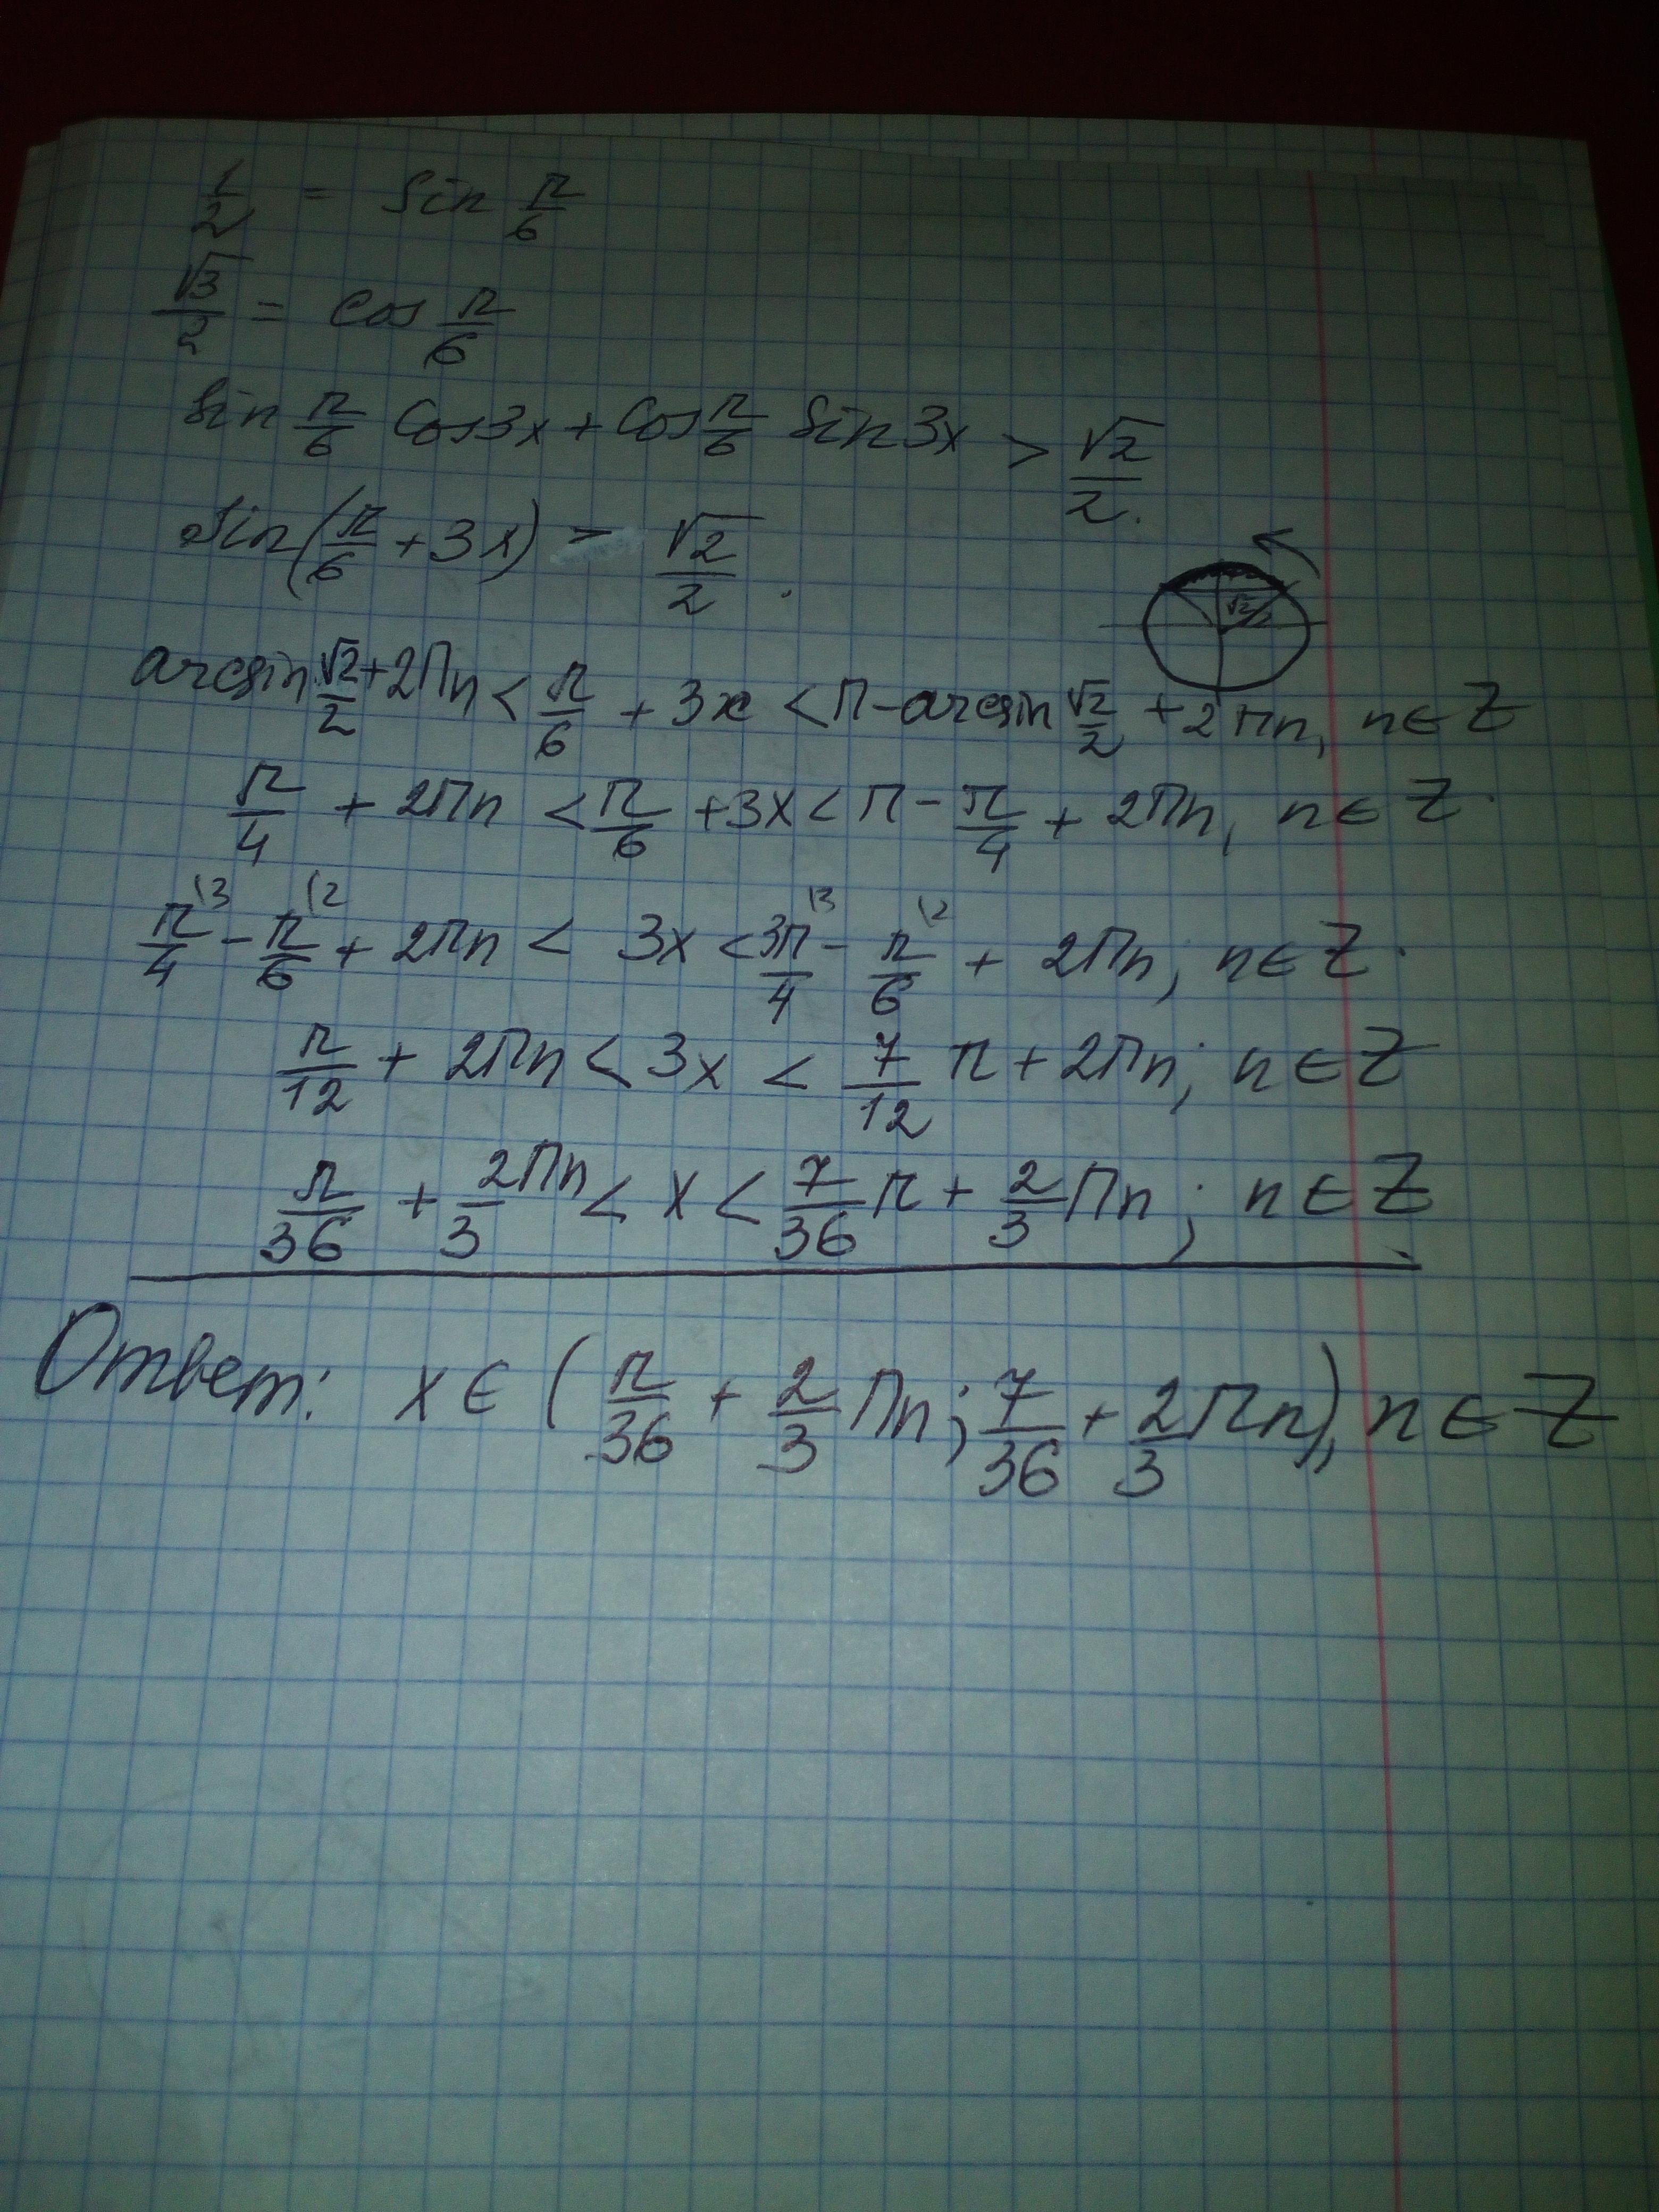 1/2 = Sin π/6
√3/2 = Cos π/6
Sin π/6 Cos3x + Cos π/6 Sin3x > √2/2.
Sin(π/6 + 3x) > √2/2.
√2
arcsin √2/2 + 2Πn < π/6 + 3x < π - arcsin √2/2 + 2πn, n ∈ Z
π/4 + 2Πn < π/6 + 3x < π - π/4 + 2Πn, n ∈ Z.
π/4 \3 - π/6 \2 + 2Πn < 3x < 3π/4 \3 - π/6 \2 + 2Πn; n ∈ Z.
π/12 + 2Πn < 3x < 7/12 π + 2Πn; n ∈ Z
π/36 + 2/3 Πn < x < 7/36 π + 2/3 Πn; n ∈ Z
Ответ: x ∈ (π/36 + 2/3 Πn; 7/36 + 2/3 Πn), n ∈ Z